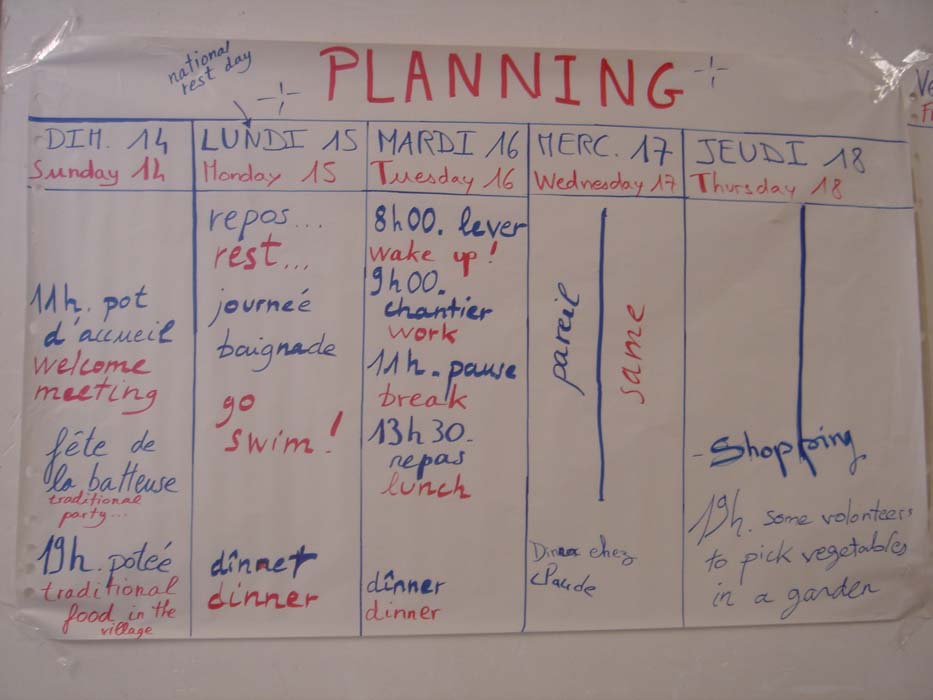 national
rest day
PLANNING
DIM. 14
Sunday 14
11h. pot
d'accueil
welcome
meeting
fête de
la batteuse
traditional
party...
19h. poteé
traditional
food in the
village
LUNDI 15
Monday 15
repos...
rest...
journeé
baignade
go
swim!
dînner
dinner
MARDI 16
Tuesday 16
8h00. lever
wake up!
9h00.
chantier
work
11h. pause
break
13h30.
repas
lunch
dînner
dinner
MERC. 17
Wednesday 17
pareil
same
chez
JEUDI 18
Thursday 18
- Shopping
19h. some volonteers
to pick vegetables
in a garden
Ve